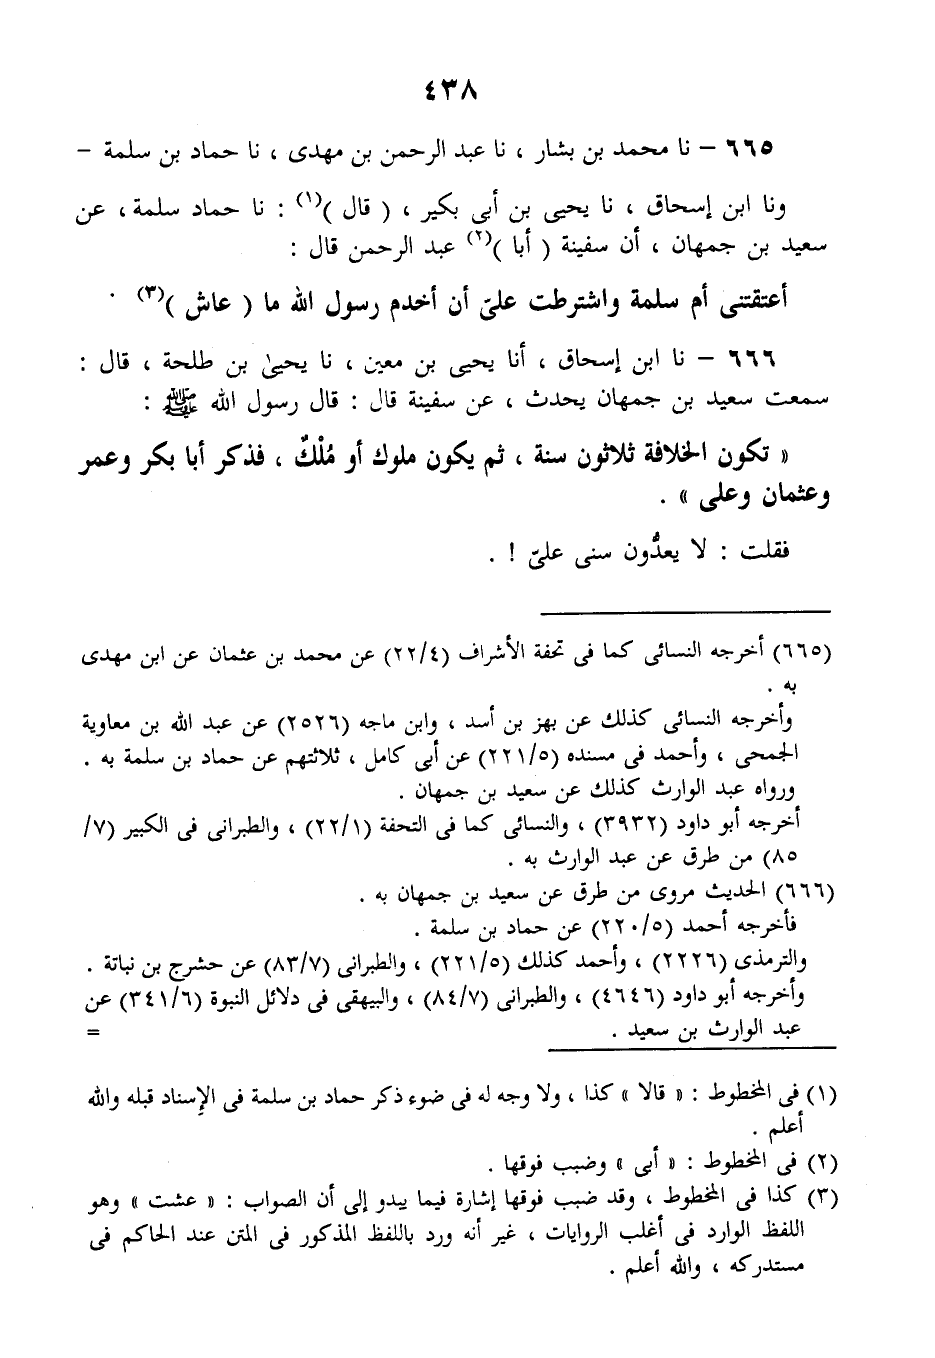 ٤٣٨
٦٦٥ – نا محمد بن بشار ، نا عبد الرحمن بن مهدى ، نا حماد بن سلمة –
ونا ابن إسحاق ، نا يحيى بن أبى بكير ، ( قال )(١) : نا حماد سلمة ، عن
سعيد بن جمهان ، أن سفينة ( أبا )(٢) عبد الرحمن قال :
أعتقتنى أم سلمة واشترطت علىّ أن أخدم رسول الله ما ( عاش )(٣) .
٦٦٦ – نا ابن إسحاق ، أنا يحيى بن معين ، نا يحيىٰ بن طلحة ، قال :
سمعت سعيد بن جمهان يحدث ، عن سفينة قال : قال رسول الله ﷺ :
« تكون الخلافة ثلاثون سنة ، ثم يكون ملوك أو مُلْكٌ ، فذكر أبا بكر وعمر
وعثمان وعلى » .
فقلت : لا يعدُّون سنى علىّ ! .
(٦٦٥) أخرجه النسائى كما فى تحفة الأشراف (٢٢/٤) عن محمد بن عثمان عن ابن مهدى
به .
وأخرجه النسائى كذلك عن بهز بن أسد ، وابن ماجه (٢٥٢٦) عن عبد الله بن معاوية
الجمحى ، وأحمد فى مسنده (٢٢١/٥) عن أبى كامل ، ثلاثتهم عن حماد بن سلمة به .
ورواه عبد الوارث كذلك عن سعيد بن جمهان .
أخرجه أبو داود (٣٩٣٢) ، والنسائى كما فى التحفة (٢٢/١) ، والطبرانى فى الكبير (٧/
٨٥) من طرق عن عبد الوارث به .
(٦٦٦) الحديث مروى من طرق عن سعيد بن جمهان به .
فأخرجه أحمد (٢٢٠/٥) عن حماد بن سلمة .
والترمذى (٢٢٢٦) ، وأحمد كذلك (٢٢١/٥) ، والطبرانى (٨٣/٧) عن حشرج بن نباتة .
وأخرجه أبو داود (٤٦٤٦) ، والطبرانى (٨٤/٧) ، والبيهقى فى دلائل النبوة (٣٤١/٦) عن
عبد الوارث بن سعيد . =
(١) فى المخطوط : « قالا » كذا ، ولا وجه له فى ضوء ذكر حماد بن سلمة فى الإسناد قبله والله
أعلم .
(٢) فى المخطوط : « أبى » وضبب فوقها .
(٣) كذا فى المخطوط ، وقد ضبب فوقها إشارة فيما يبدو إلى أن الصواب : « عشت » وهو
اللفظ الوارد فى أغلب الروايات ، غير أنه ورد باللفظ المذكور فى المتن عند الحاكم فى
مستدركه ، والله أعلم .